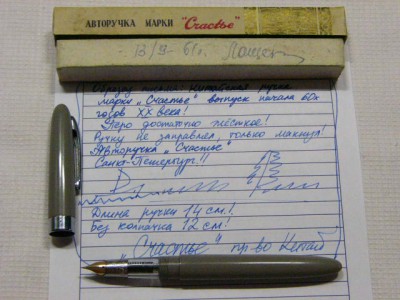 АВТОРУЧКА МАРКИ "Счастье"
13/9-61г.
Образец письма! Китайская ручка
марки „Счастье" выпуск начала 60х
годов XX века!
Перо достаточно жёсткое!
Ручку не заправлял, только макнул!
Авторучка „Счастье"
Санкт-Петербург!!
Длина ручки 14 см!
Без колпачка 12 см!
„Счастье" пр-во Китай